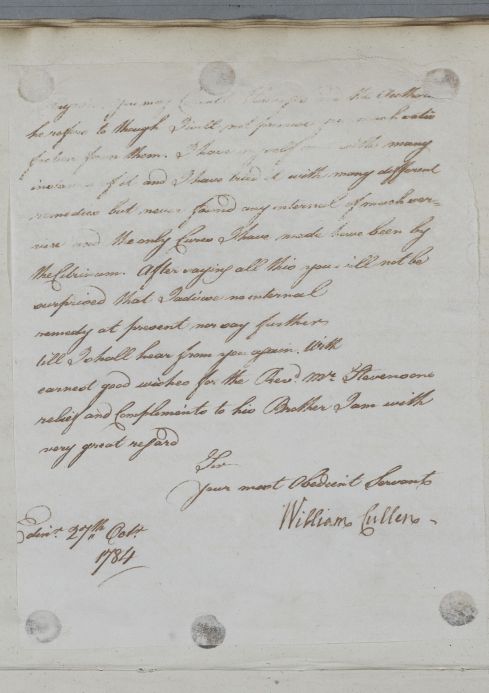 you may consult and the Authors
he refers to though I will not promise you much satis
faction from them. I have myself met with many
instances of it and I have tried it with many different
remedies but never found any internal of much ser-
vice and the only Cures I have made have been by
the Electricam. After saying all this you will not be
surprised that I advise no internal
remedy at present nor say further
till I shall hear from you again. With
earnest good wishes for the Revd. Mr. Stevensons
relief and Complements to his Brother I am with
very great regard
Sir
Your most Obedient Servant
William Cullen
Edinr. 27th Octr.
1784